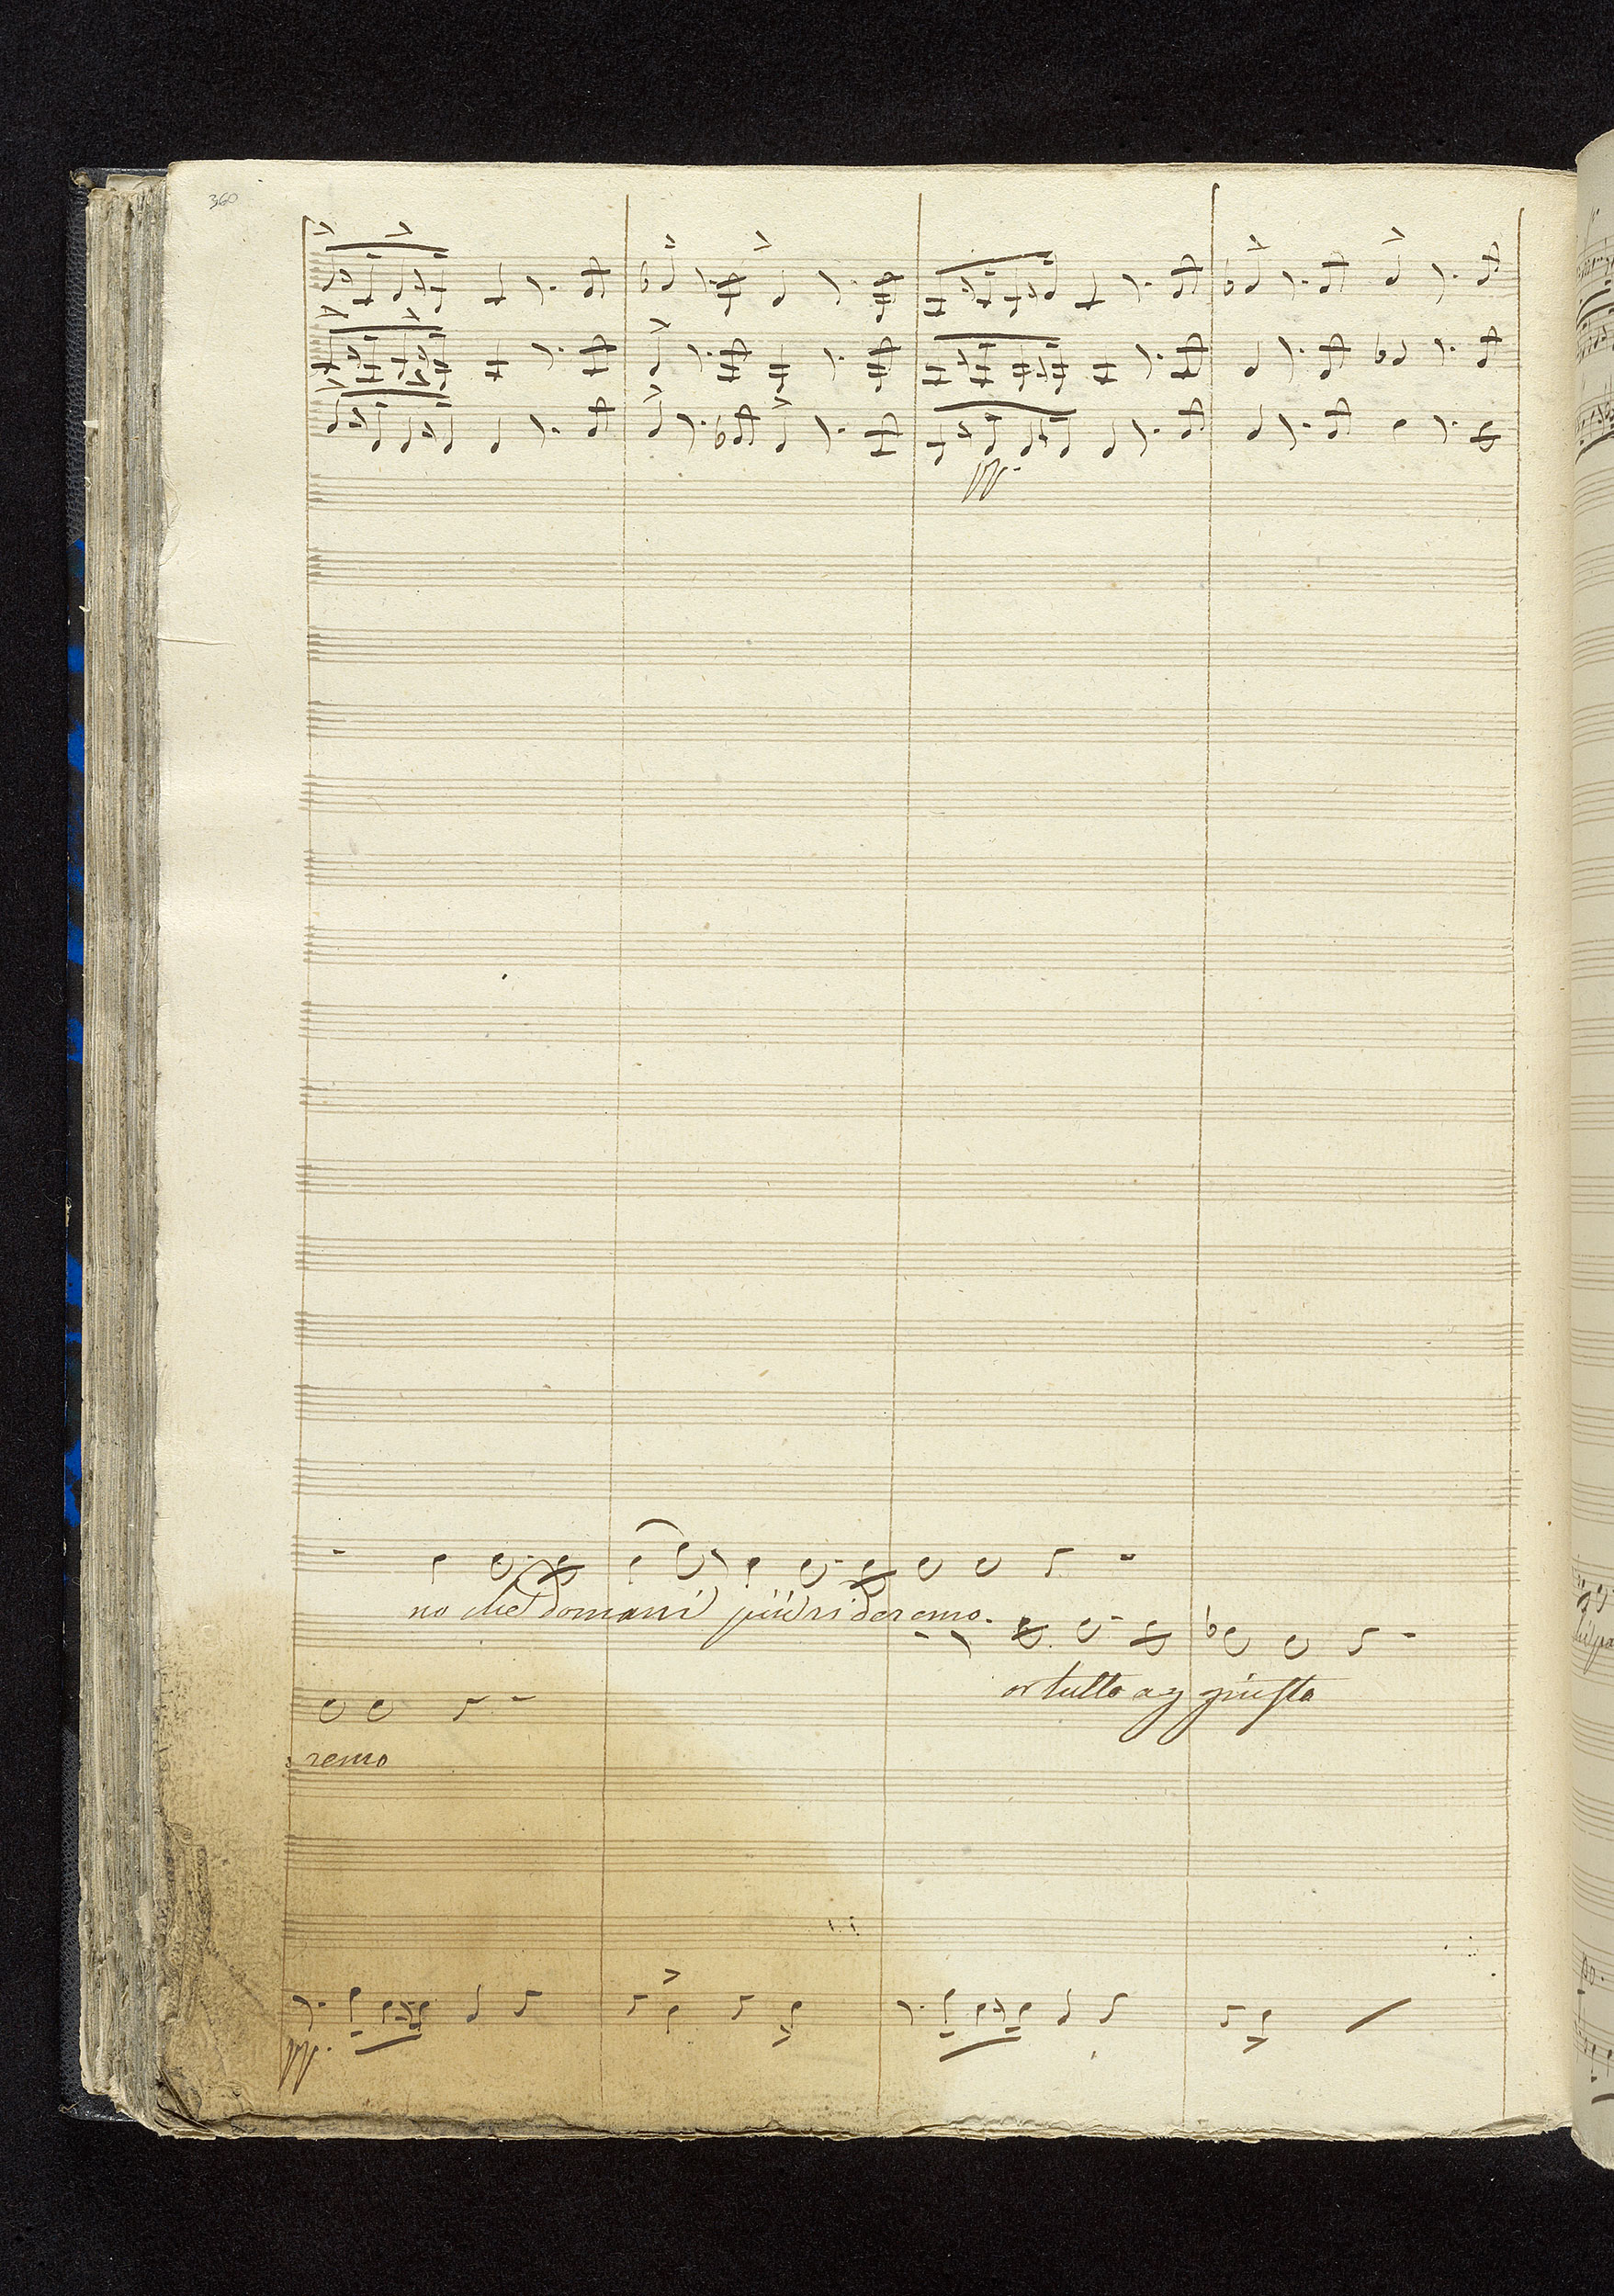 360
ppp.
no che domani più rideremo.
or tutto ag giusto
remo
ppp.